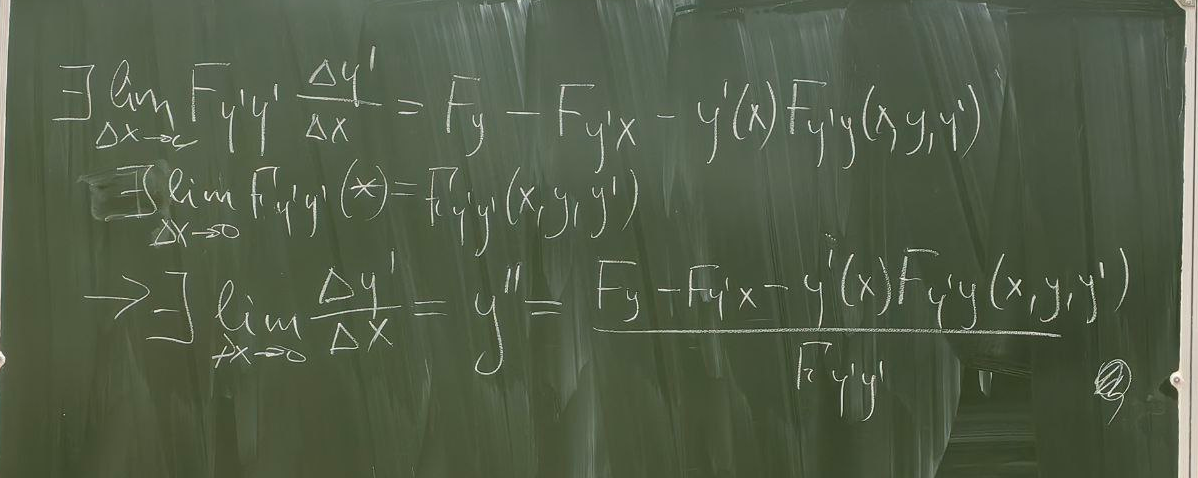 ∃ lim_{Δx→0} F_{y'y'} Δy'/Δx = F_y − F_{y'x} − y'(x) F_{y'y}(x, y, y')
∃ lim_{Δx→0} F_{y'y'}(*) = F_{y'y'}(x, y, y')
→ ∃ lim_{Δx→0} Δy'/Δx = y'' = (F_y − F_{y'x} − y'(x) F_{y'y}(x, y, y')) / F_{y'y'}